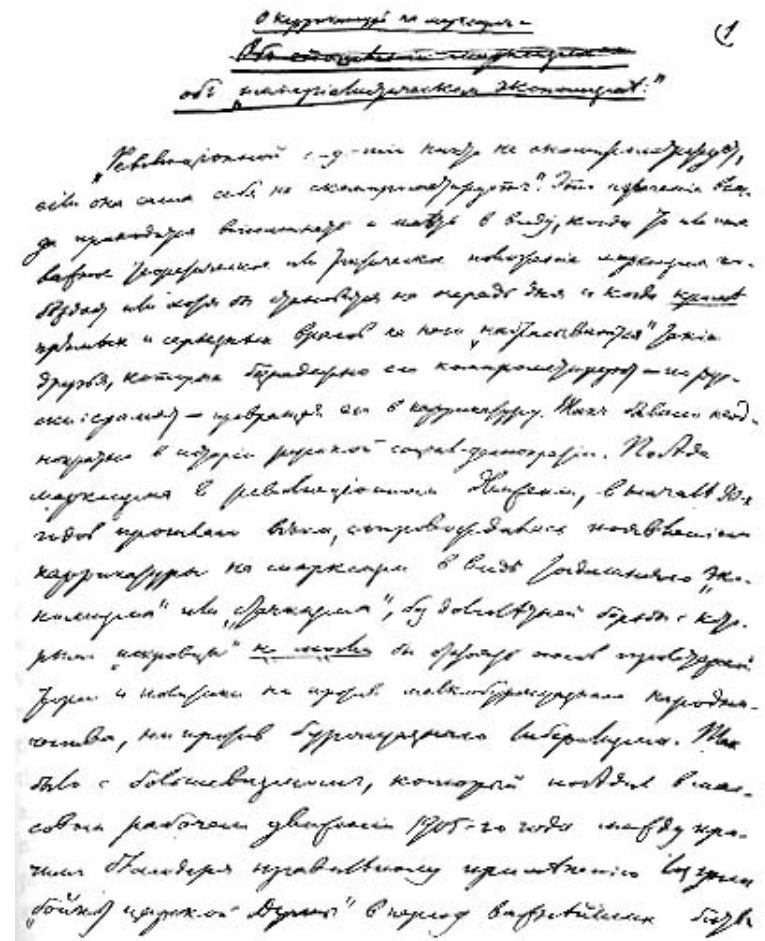 О каррикатуре на марксизм и
объ „империалистическом экономизме:“
1
„Революционной с.-д-тии никто не скомпрометирует,
если она сама себя не скомпрометирует“. Это изречение всег-
да приходится вспоминать и иметь в виду, когда то или иное
важное теоретическое или тактическое положение марксизма по-
беждает или хотя бы становится на очередь дня и когда кроме
прямых и серьезных врагов на него „набрасываются“ такие
друзья, которые безнадежно его компрометируют — по рус-
ски: срамят — превращая его в каррикатуру. Так бывало неод-
нократно в истории русской социал-демократии. Победа
марксизма в революционном движении, в начале 90-х
годов прошлого века, сопровождалась появлением
каррикатуры на марксизм в виде тогдашнего „эко-
номизма“ или „стачкизма“, без долголетней борьбы с кото-
рым „искровцы“ не могли бы отстоять основ пролетарской
теории и политики ни против мелкобуржуазного народни-
чества, ни против буржуазного либерализма. Так
было с большевизмом, который победил в мас-
совом рабочем движении 1905-го года между про-
чим благодаря правильному применению лозунга
„бойкот царской Думы“ в период важнейших битв